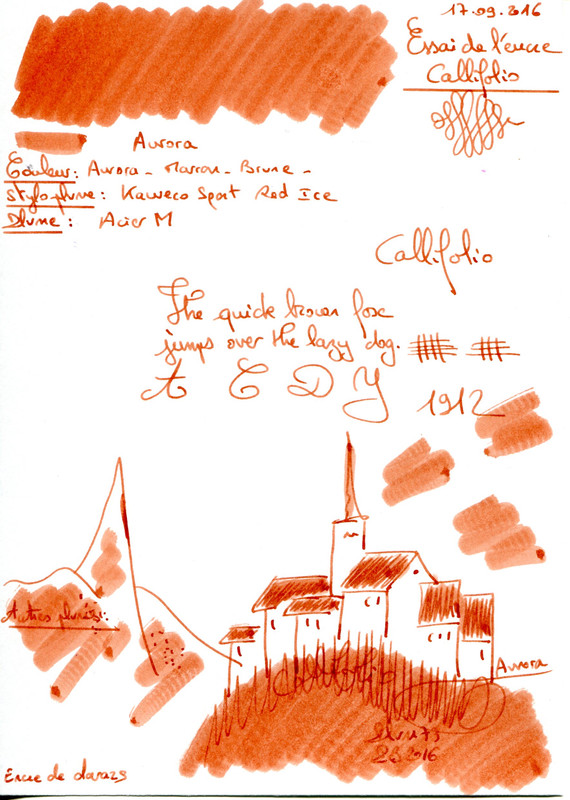 17.09.2016
Essai de l'encre
Callifolio
Aurora
Couleur: Aurora - Marron - Brune -
Stylo plume: Kaweco Sport Red Ice
Plume: Acier M
Callifolio
The quick brown fox
jumps over the lazy dog.
A C D Y
1912
Autres plumes:
Callifolio
Aurora
2016
Encre de